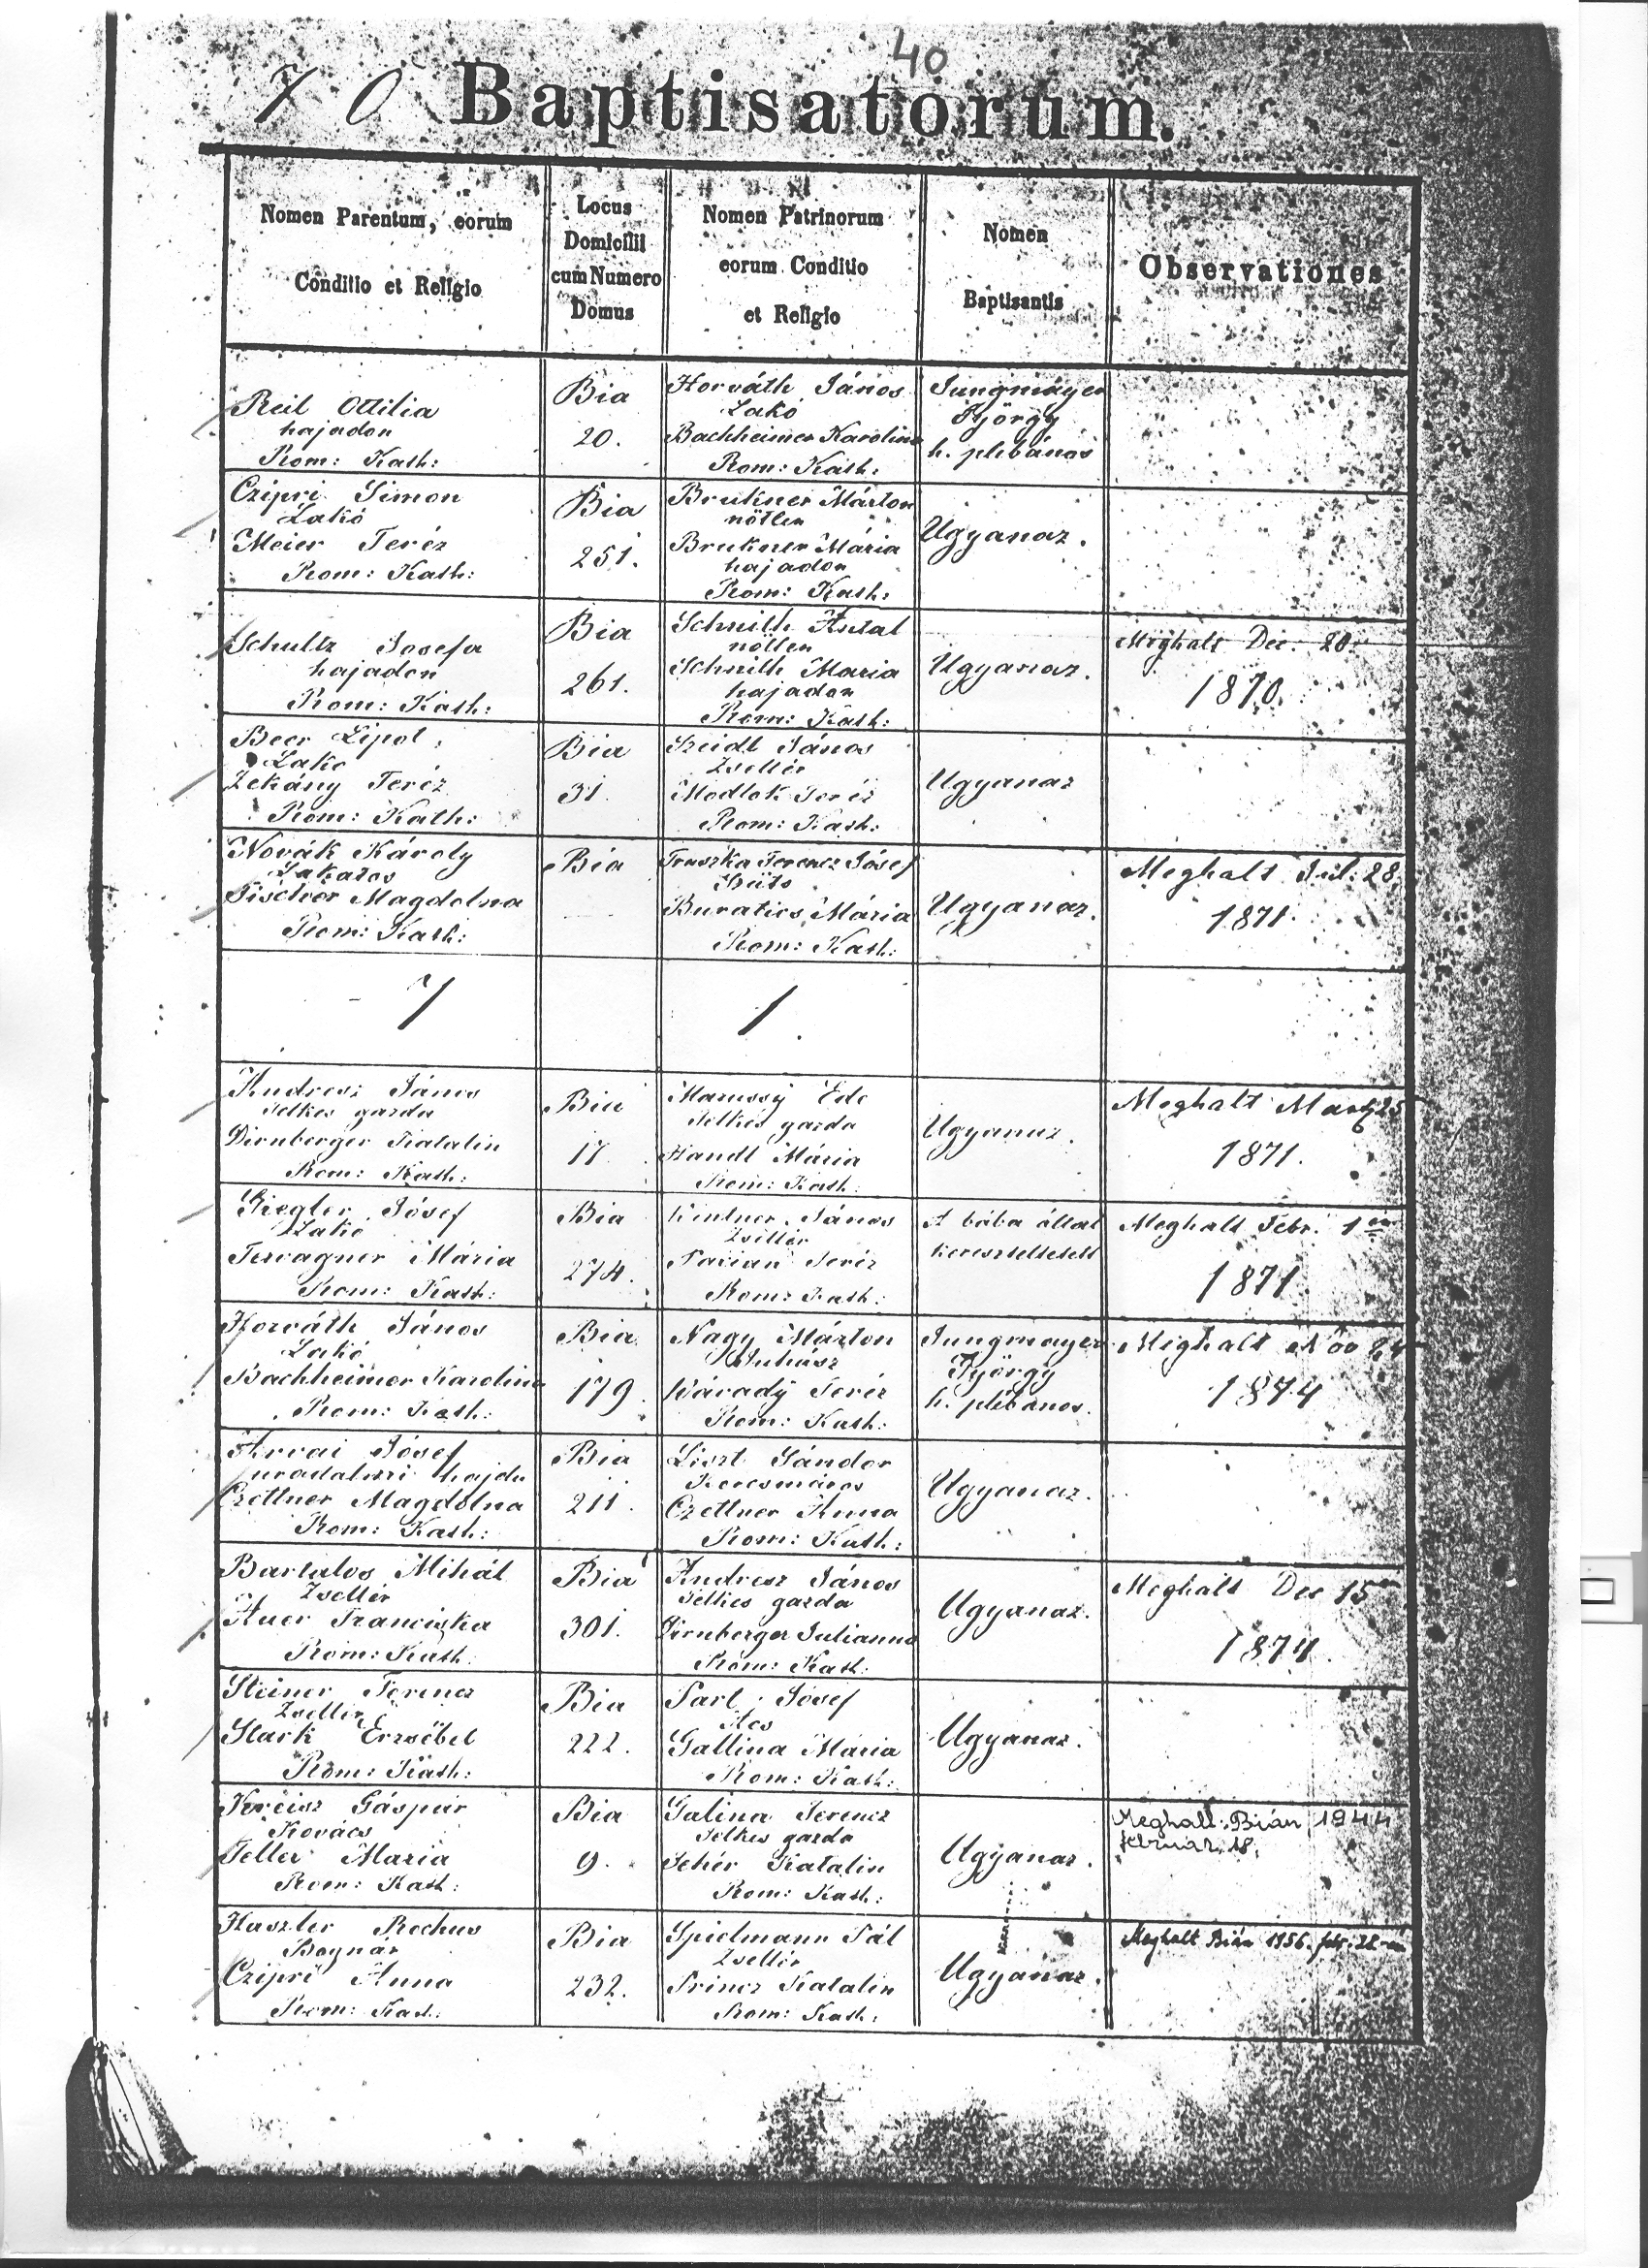 40
7 0 Baptisatorum.
Nomen Parentum, eorum
Conditio et Religio
Locus
Domicilii
cum Numero
Domus
Nomen Patrinorum
eorum Conditio
et Religio
Nomen
Baptisantis
Observationes
Reil Ottilia
hajadon
Rom: Kath:
Bia
20.
Horváth János
Lakó
Bachheimer Karolina
Rom: Kath:
Jungmayer
György
h. plébános
Czipri Simon
Lakó
Meier Teréz
Rom: Kath:
Bia
251.
Brukner Márton
nötlen
Brukner Mária
hajadon
Rom: Kath:
Ugyanaz.
Schultz Josefa
hajadon
Rom: Kath:
Bia
261.
Schnith Antal
nötlen
Schnith Maria
hajadon
Rom: Kath:
Ugyanaz.
Meghalt Dec: 20.
1870.
Beer Lipot
Lakó
Zekány Teréz
Rom: Kath:
Bia
31.
Szeidl János
Zsellér
Modlok Teréz
Rom: Kath:
Ugyanaz
Novák Károly
Lakatos
Magdolna
Rom: Kath:
Bia
Ferencz Jósef
Buratics Mária
Rom: Kath:
Ugyanaz.
Meghalt Jul: 28.
1871.
7
1.
Andresz János
telkes gazda
Dirnberger Katalin
Rom: Kath:
Bia
17
Marussy Ede
telkes gazda
Handl Mária
Rom: Kath:
Ugyanaz.
Meghalt Mart 25
1871.
Ziegler Jósef
Lakó
Mária
Rom: Kath:
Bia
274.
János
Zsellér
Teréz
Rom: Kath:
A bába által
kereszteltetett
Meghalt Febr. 1 én
1871.
Horváth János
Lakó
Bachheimer Karolina
Rom: Kath:
Bia
179.
Nagy Márton
Juhász
Várady Teréz
Rom: Kath:
Jungmayer
György
h. plébános.
Meghalt Nov 24
1874
Arvai Jósef
uradalmi hajdu
Czettner Magdolna
Rom: Kath:
Bia
211.
Liszt Sándor
Korcsmáros
Czettner Anna
Rom: Kath:
Ugyanaz.
Bartalos Mihál
Zsellér
Auer Franciska
Rom: Kath:
Bia
301.
Andresz János
telkes gazda
Dirnberger Julianna
Rom: Kath:
Ugyanaz.
Meghalt Dec 15
1874.
Steiner Ferencz
Zsellér
Stark Erzsébet
Rom: Kath:
Bia
222.
Parl Jósef
Ács
Gallina Mária
Rom: Kath:
Ugyanaz.
Gáspár
Kovács
Feller Maria
Rom: Kath:
Bia
9.
Galina Ferencz
telkes gazda
Fehér Katalin
Rom: Kath:
Ugyanaz.
Meghalt: Bián 1944
február. 18.
Haszler Rochus
Bognár
Czipri Anna
Rom: Kath:
Bia
232.
Spielmann Pál
Zsellér
Princz Katalin
Rom: Kath:
Ugyanaz.
Meghalt Bián 1956. febr. 22-én